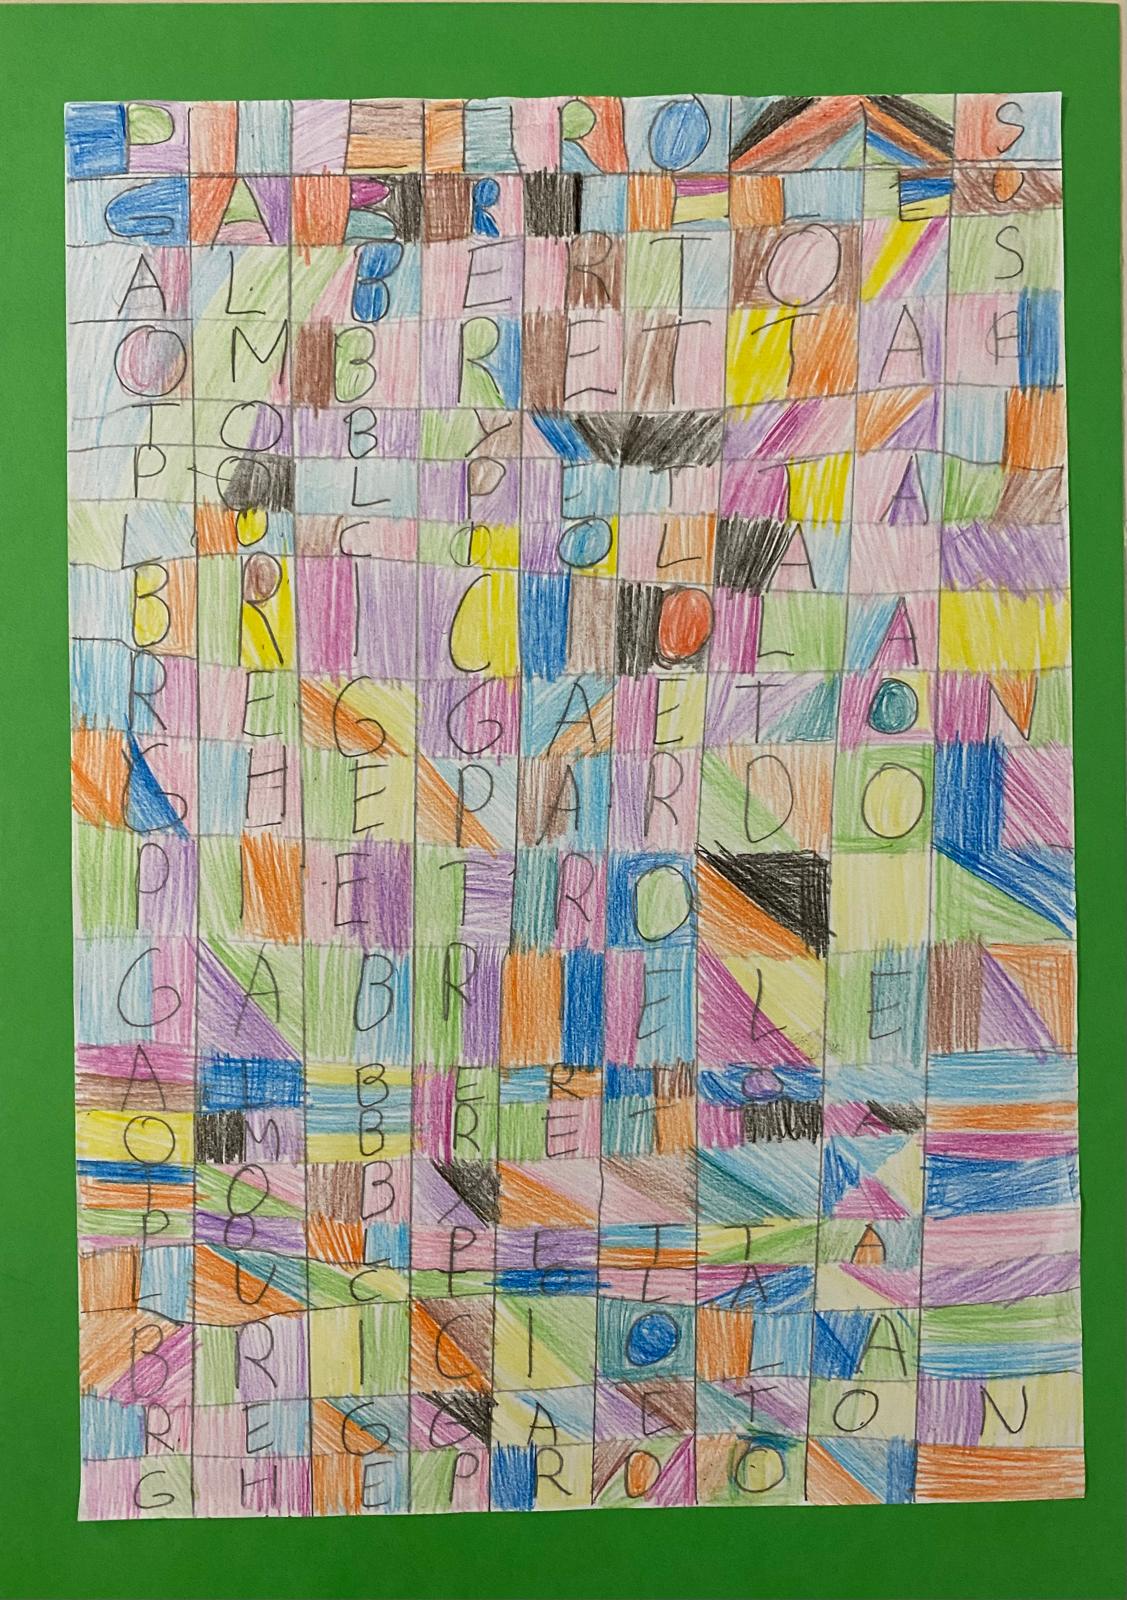 PIERO S
GABRIELE O
ALBERTO S
OMBRETTA B
TOBY
POLPETTA
LOCOOLA
BRICIOLA
REGGAETON
GHEPARDO
PIETRO
GABRIELE
AIBERTO
OMBRETA
TOBY
POLPETTA
LUCIOLA
BRICIOLA
REGGAETON
GHEPRDO